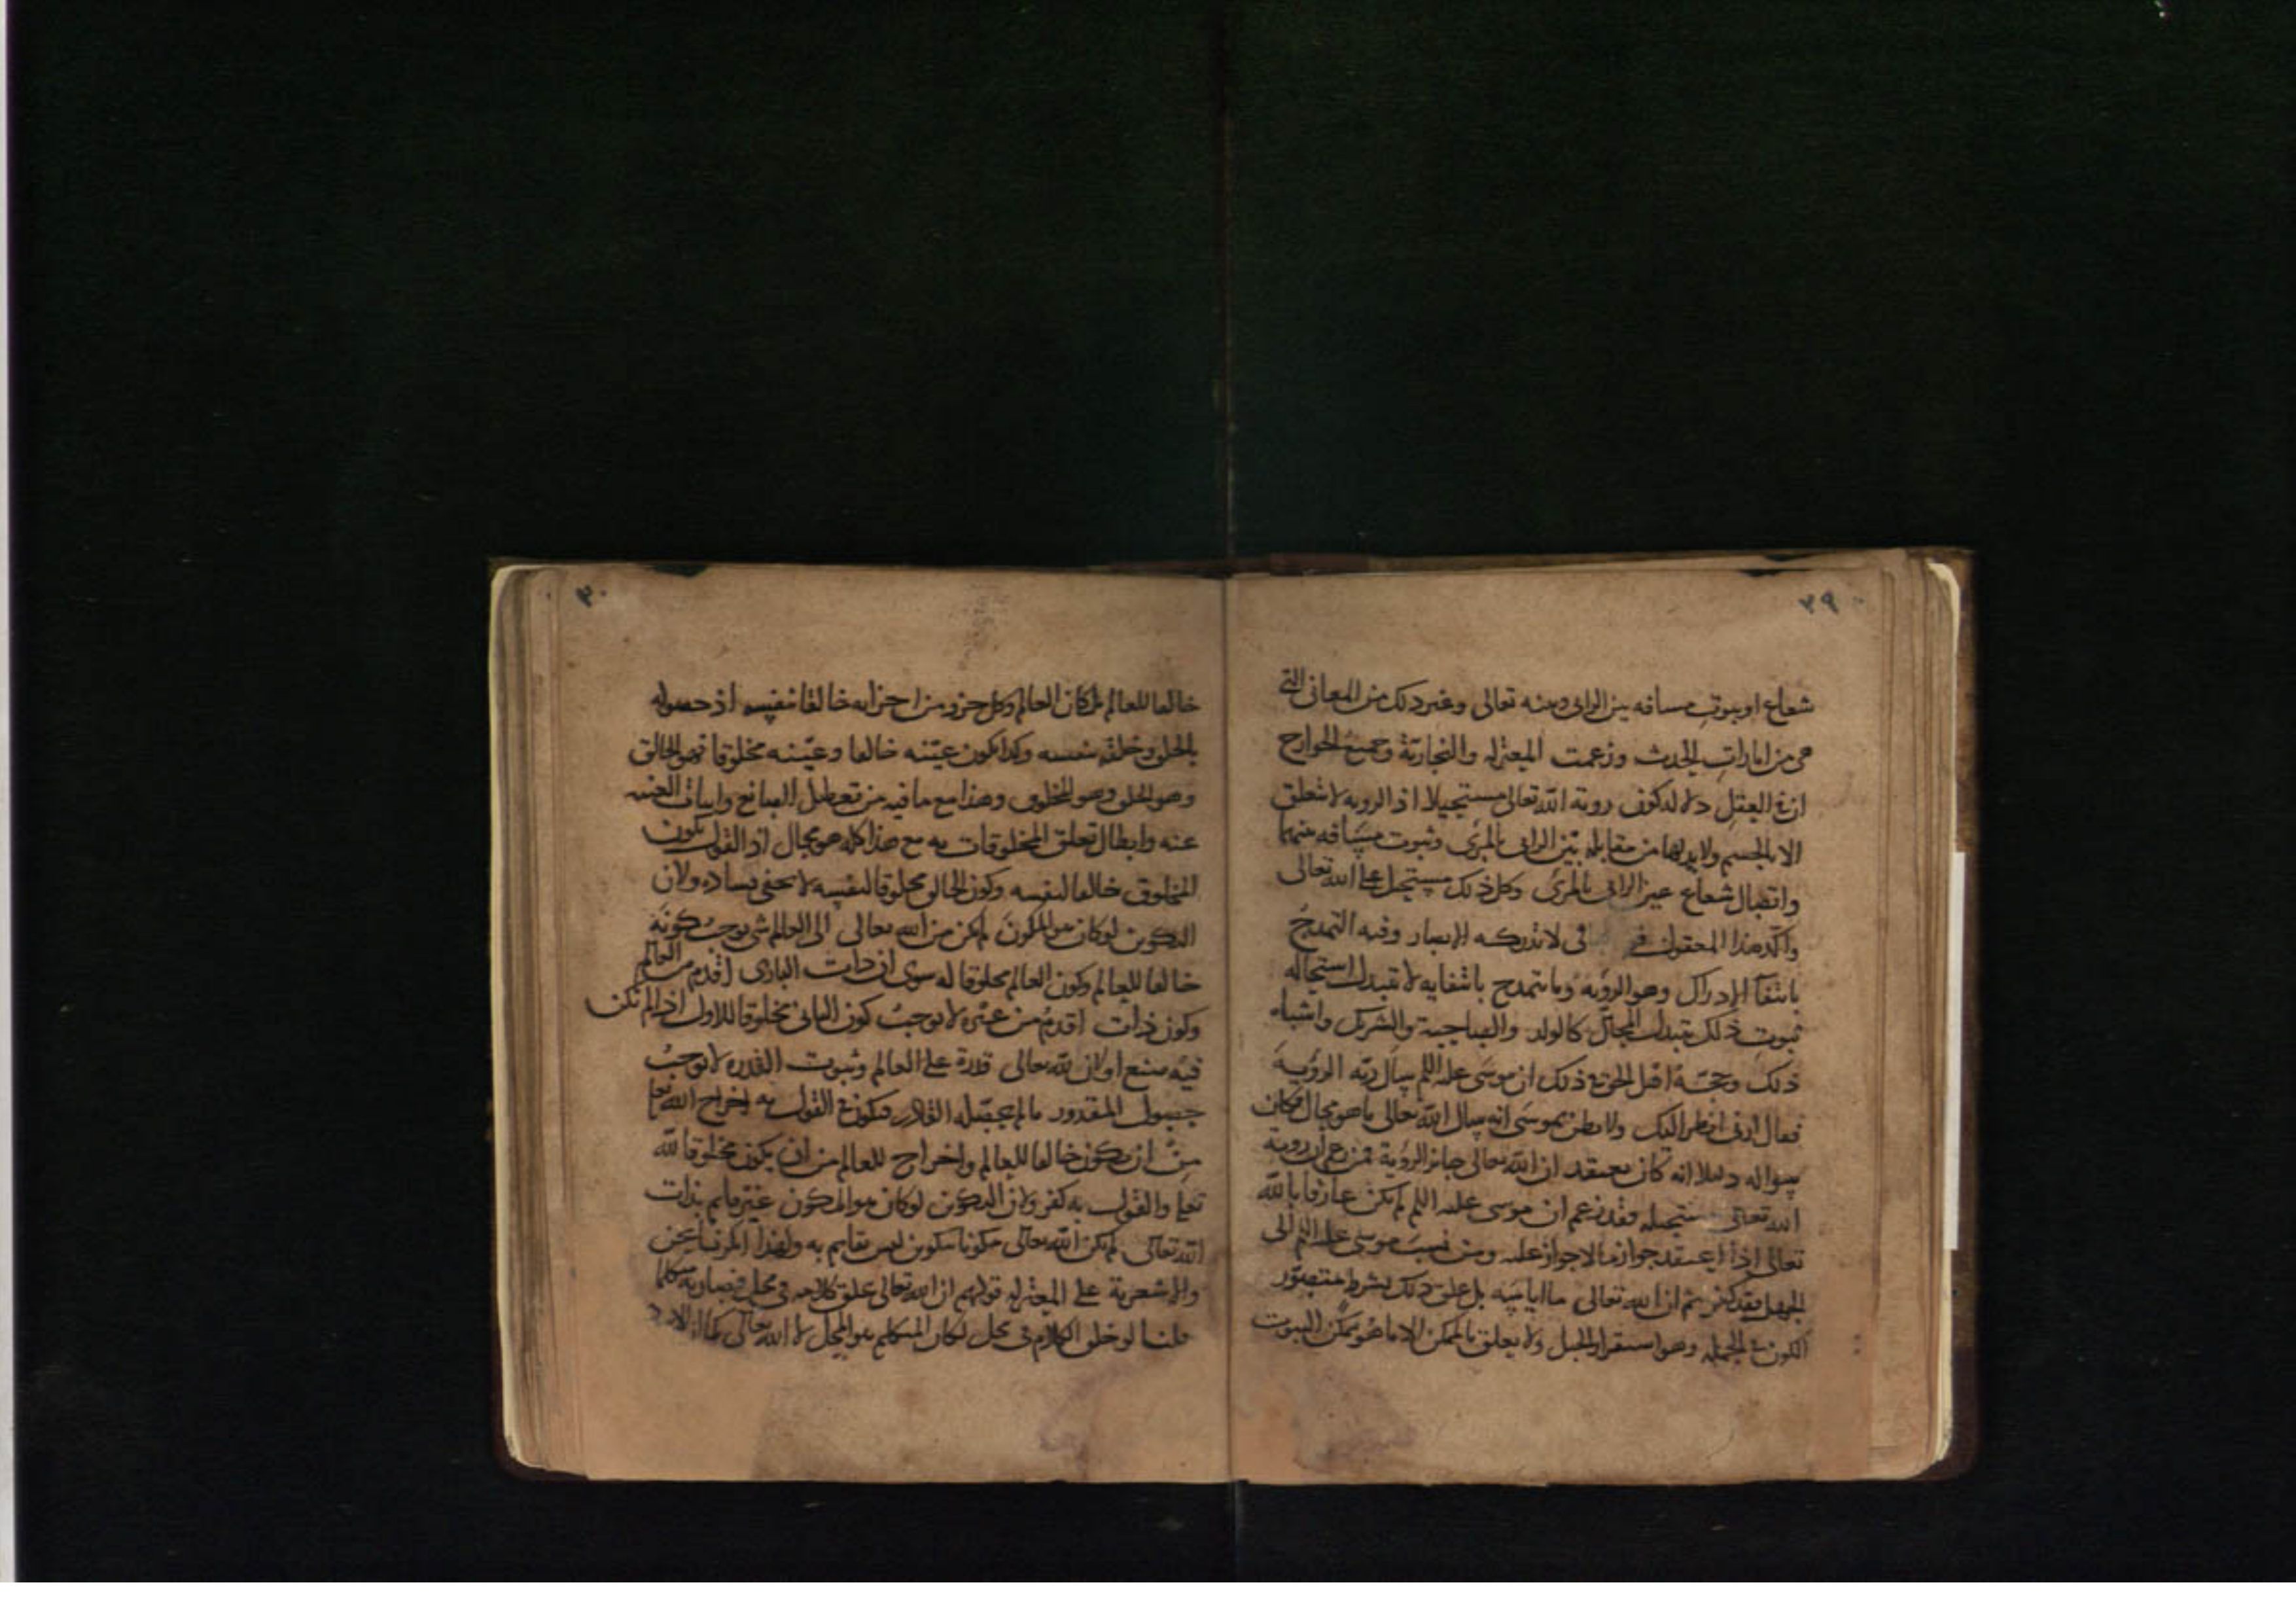 ٢٩
شعاع او ثبوت مسافه بين الرائ وبينه تعالى وغير ذلك من المعانى التى
هى من امارات الحدث وزعمت المعتزله والنجارية وجميع الخوارج
ان فى العقل دلالة كون روية الله تعالى مستحيلا اذ الرويه لا تتعلق
الا بالجسم ولا بد لها من مقابلة بين الرائى والمرئ وثبوت مسافه بينهما
واتصال شعاع عين الرائى بالمرئ وكل ذلك مستحيل على الله تعالى
واكد هذا المعقول لا تدركه الابصار وفيه التمدح
بانتفآ الادراك وهو الرؤيه وما يتمدح بانتفايه لا تتبدل استحاله
ثبوت ذلك بتبدل المحال كالولد والصاحبة والشريك واشباه
ذلك وحجة اهل الحق ذلك ان موسى عليه السلم سأل ربه الرؤية
فقال ارنى انظر اليك ولا يظن بموسى انه سال الله تعالى ما هو محال فكان
سواله دليلا انه كان يعتقد ان الله تعالى جايز الرؤية فمن زعم ان روية
الله تعالى مستحيله فقد زعم ان موسى عليه السلم لم يكن عارفا بالله
تعالى اذا اعتقد جواز ما لا جواز عليه ومن نسب موسى عليه السلم الى
الجهل فقد كفر ثم ان الله تعالى ما اياسه بل علق ذلك بشرط متصور
الكون فى الجمله وهو استقرار الجبل ولا يعلق بالممكن الا ما هو ممكن الثبوت
٣٠
خالقا للعالم بل كان العالم وكل جزو من اجزايه خالقا لنفسه اذ حصوله
بالخلق وخلقه نفسه وكذا يكون عينه خالقا وعينه مخلوقا فهو الخالق
وهو الخلق وهو المخلوق وهذا مع ما فيه من تعطيل الصانع واثبات الغنيه
عنه وابطال تعلق المخلوقات به مع هذا كله هو محال اذ القول بكون
المخلوق خالقا لنفسه وكون الخالق مخلوقا لنفسه لا يخفى فساده ولان
التكوين لو كان هو المكون لم يكن من الله تعالى الى العالم شى يوجب كونه
خالقا للعالم وكون العالم مخلوقا له سوى ان ذات البارى اقدم من العالم
وكون ذات اقدم من غيره لا يوجب كون الثانى مخلوقا للاول اذا لم تكن
فيه صنع او ان لله تعالى قدرة على العالم وثبوت القدره لا توجب
حصول المقدور ما لم يحصله القادر فيكون فى القول به اخراج الله تعا
من ان يكون خالقا للعالم واخراج للعالم من ان يكون مخلوقا لله
تعا والقول به كفر ولان التكوين لو كان هو المكون غير قايم بذات
الله تعالى لم يكن الله تعالى مكونا بتكوين ليس بقايم به ولهذا انكرنا نحن
والاشعرية على المعتزله قولهم ان الله تعالى خلق كلامه فى محل فصار به متكلما
قلنا لو خلق الكلام فى محل لكان المتكلم هو المحل لا الله تعالى كما